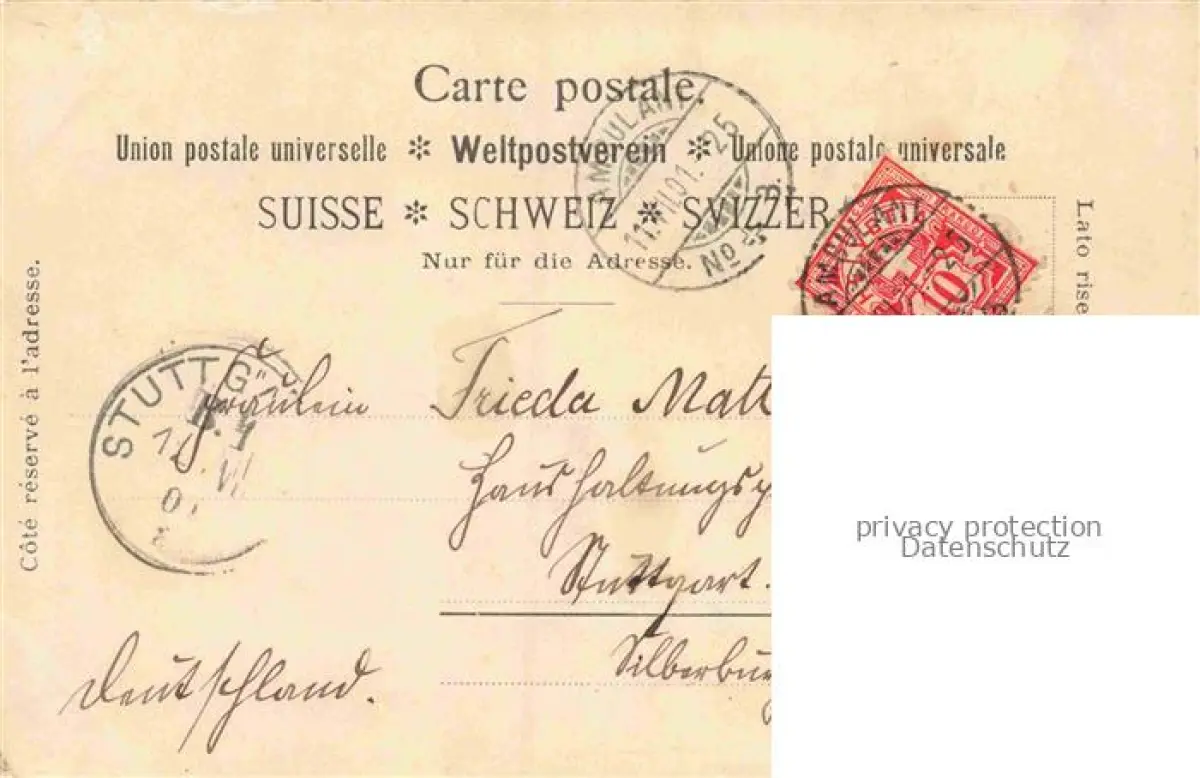 Carte postale.
Union postale universelle ✻ Weltpostverein ✻ Unione postale universale
SUISSE ✻ SCHWEIZ ✻ SVIZZER
Nur für die Adresse.
AMBULANT
11.VII.01. 25
No
AMBULANT
25
10
Lato rise
Côté réservé à l'adresse.
STUTTG
Fräulein Frieda Matt
Haushaltungs
Stuttgart.
Silberbu
Deutschland.
privacy protection
Datenschutz